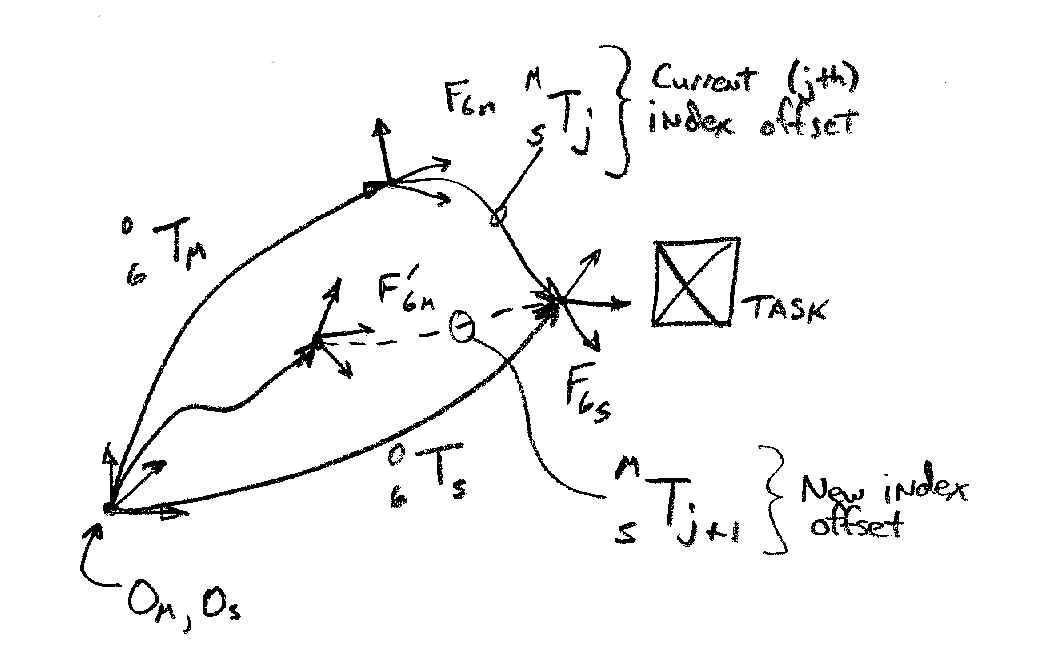 F6M M S Tj } Current (jth)
index offset
0 6 TM
F'6M
TASK
F6S
0 6 TS
M S Tj+1 } New index
offset
OM, OS